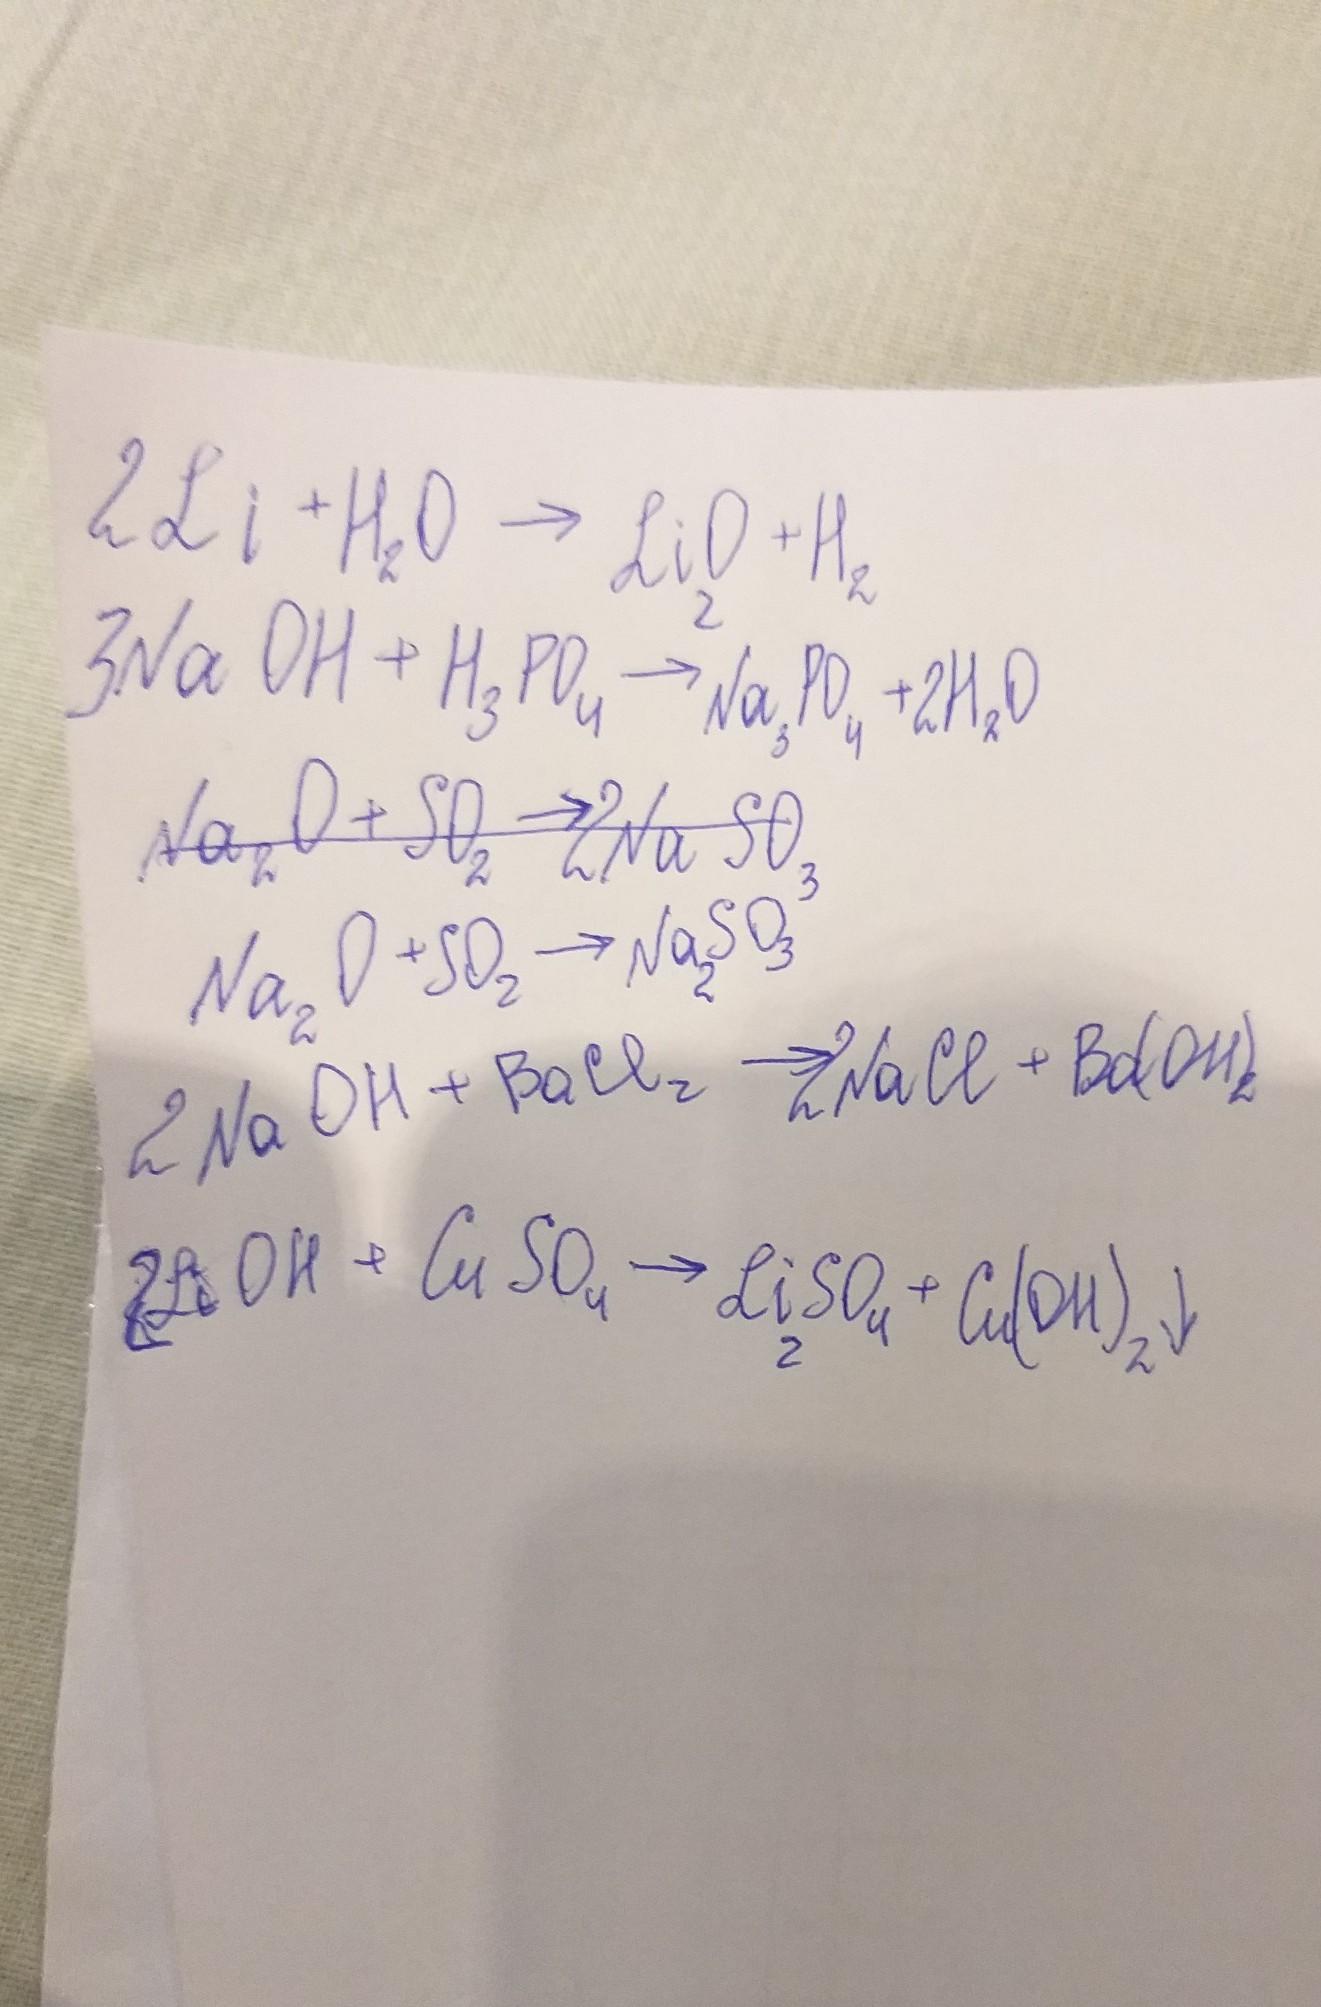 2Li + H₂O → Li₂O + H₂
3NaOH + H₃PO₄ → Na₃PO₄ + 2H₂O
Na₂O + SO₂ → 2NaSO₃
Na₂O + SO₂ → Na₂SO₃
2NaOH + BaCl₂ → 2NaCl + Ba(OH)₂
2LiOH + CuSO₄ → Li₂SO₄ + Cu(OH)₂↓